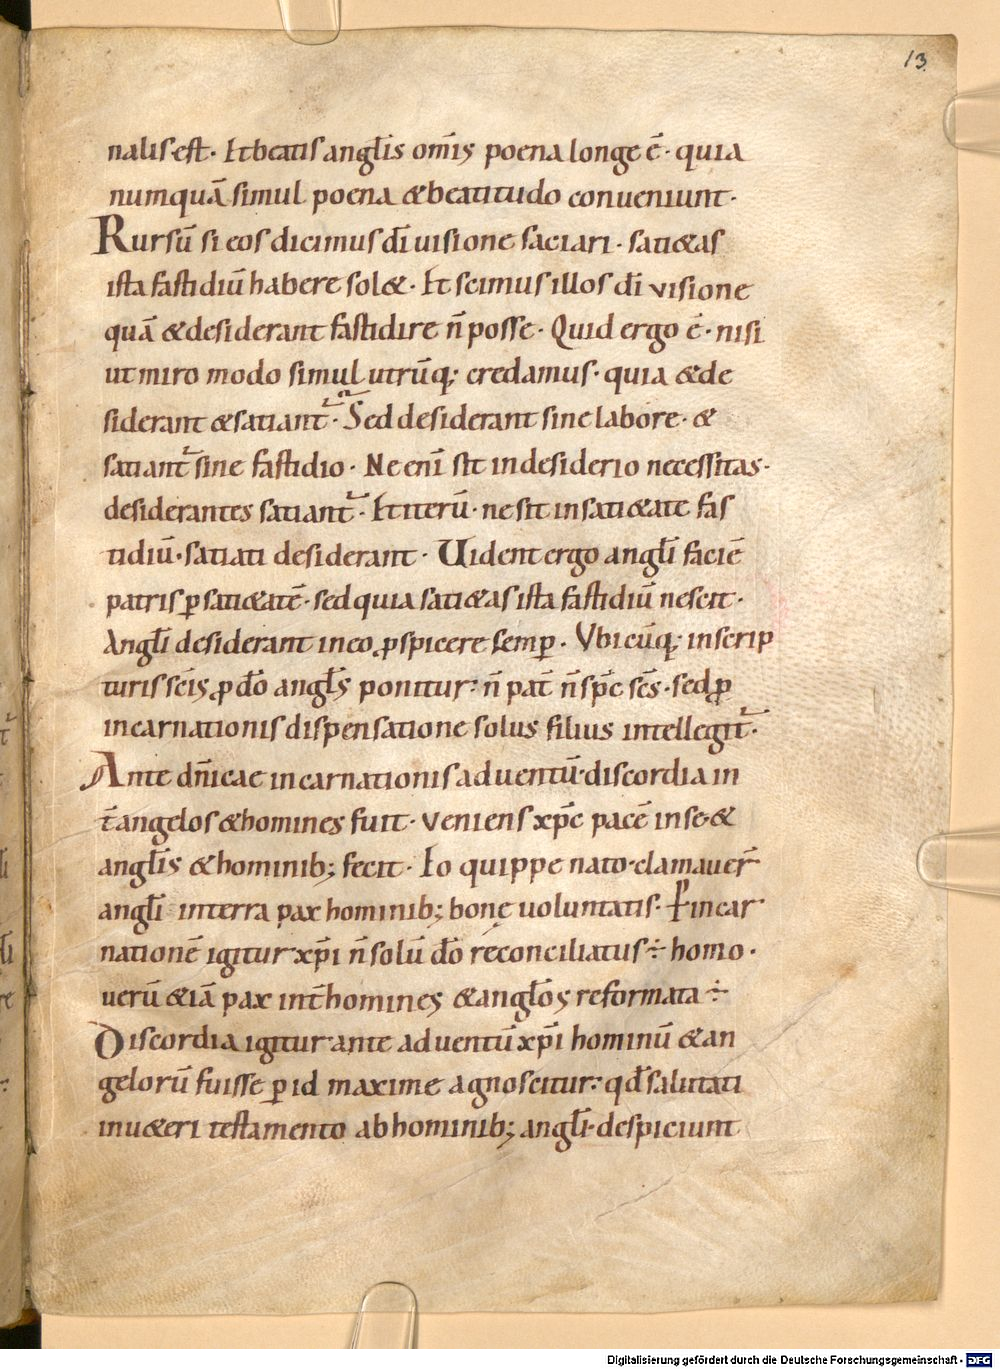 13
nalis est. Et beatis angl̄is om̄is poena longe ē. quia
numquā simul poena & beatitudo conueniunt.
Rursū si eos dicimus dī uisione saciari. sati&as
ista fastidiū habere sol&. Et scimus illos dī visione
quā & desiderant fastidire n̄ posse. Quid ergo ē. nisi
ut miro modo simul utrūq; credamus. quia & de
siderant & satiant᷑. Sed desiderant sine labore. &
satiant᷑ sine fastidio. Ne enī sit in desiderio necessitas.
desiderantes satiant᷑. Et iterū. ne sit in sati&ate fas
tidiū. satiati desiderant. Uident ergo angl̄i faciē
patris ꝑ sati&atē. sed quia sati&as ista fastidiū nescit.
Angl̄i desiderant in eo ꝓspicere semꝑ. Vbicūq; in scrip
turis sc̄is ꝓ dō angl̄s ponitur: n̄ pat̄ n̄ sp̄c sc̄s. sed ꝓ
incarnationis dispensatione solus filius intellegit᷑.
Ante dn̄icae incarnationis aduentū. discordia in
t̄ angelos & homines fuit. Veniens xp̄c pacē in se. &
angl̄is & hominib; fecit. Eo quippe nato. clamauer̄
angl̄i in terra pax hominib; bonę uoluntatis. P̄ incar
nationē igitur xp̄i n̄ solū dō reconciliatus ÷ homo.
verū & iā pax int̄ homines & angl̄os reformata ÷
Discordia igitur ante aduentū xp̄i hominū & an
gelorū fuisse ꝑ id maxime agnoscitur: qd̄ salutati
in u&eri testamento ab hominib; angl̄i. despiciunt
Digitalisierung gefördert durch die Deutsche Forschungsgemeinschaft - DFG